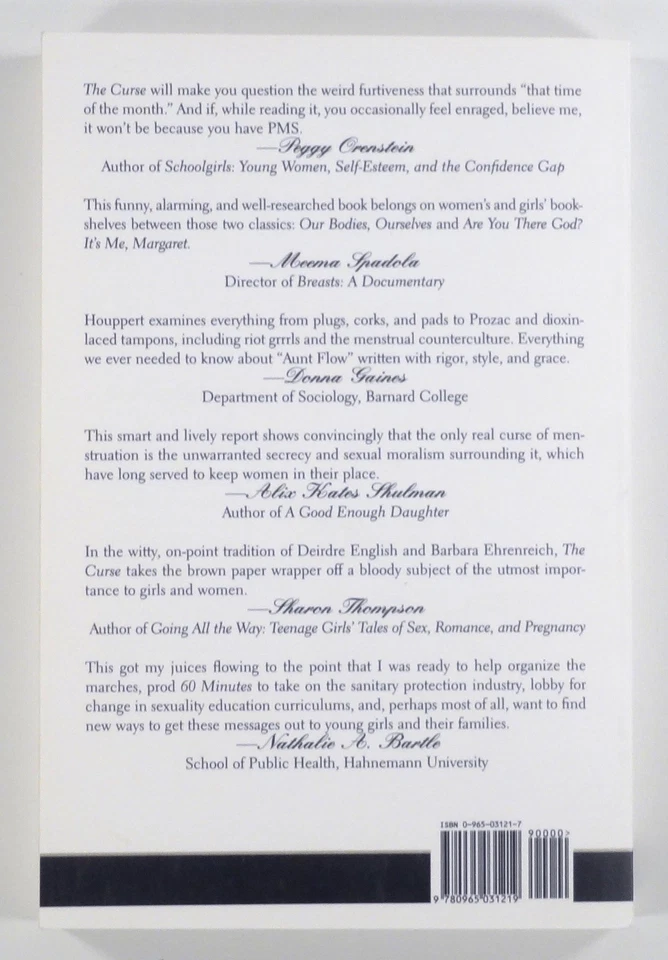 The Curse will make you question the weird furtiveness that surrounds “that time
of the month.” And if, while reading it, you occasionally feel enraged, believe me,
it won’t be because you have PMS.
—Peggy Orenstein
Author of Schoolgirls: Young Women, Self-Esteem, and the Confidence Gap
This funny, alarming, and well-researched book belongs on women’s and girls’ book-
shelves between those two classics: Our Bodies, Ourselves and Are You There God?
It’s Me, Margaret.
—Meema Spadola
Director of Breasts: A Documentary
Houppert examines everything from plugs, corks, and pads to Prozac and dioxin-
laced tampons, including riot grrrls and the menstrual counterculture. Everything
we ever needed to know about “Aunt Flow” written with rigor, style, and grace.
—Donna Gaines
Department of Sociology, Barnard College
This smart and lively report shows convincingly that the only real curse of men-
struation is the unwarranted secrecy and sexual moralism surrounding it, which
have long served to keep women in their place.
—Alix Kates Shulman
Author of A Good Enough Daughter
In the witty, on-point tradition of Deirdre English and Barbara Ehrenreich, The
Curse takes the brown paper wrapper off a bloody subject of the utmost impor-
tance to girls and women.
—Sharon Thompson
Author of Going All the Way: Teenage Girls’ Tales of Sex, Romance, and Pregnancy
This got my juices flowing to the point that I was ready to help organize the
marches, prod 60 Minutes to take on the sanitary protection industry, lobby for
change in sexuality education curriculums, and, perhaps most of all, want to find
new ways to get these messages out to young girls and their families.
—Nathalie A. Bartle
School of Public Health, Hahnemann University
ISBN 0-965-03121-7
90000>
9 780965 031219